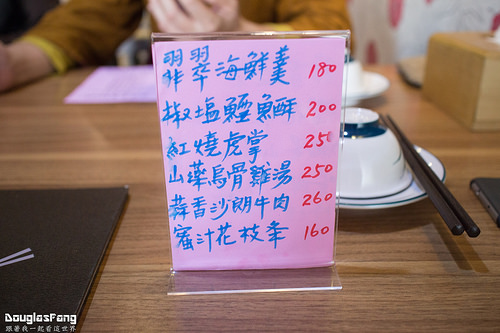 翡翠海鮮羹 180
椒塩鱈魚酥 200
紅燒虎掌 250
山藥烏骨雞湯 250
蒜香沙朗牛肉 260
蜜汁花枝条 160
DouglasFong
跟著我一起看這世界